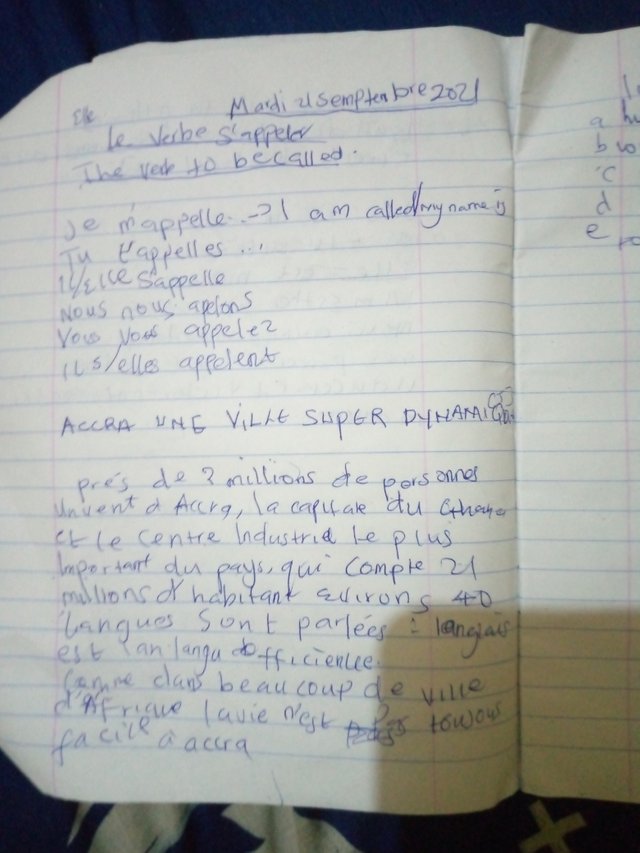 Elle
Mardi 21 Semptembre 2021
le Verbe S'appeler
The verb to be called.
Je m'appelle -> I am called/my name is
Tu t'appelles ...
Il/elle S'appelle
Nous nous apelons
Vous Vous appelez
ILS/elles appelent
ACCRA UNE VILLE SUPER DYNAMIQUE
prés de 2 millions de personnes
vivent à Accra, la capitale du Ghana
et le centre Industriel le plus
Important du pays, qui compte 21
millions d'habitant environs 40
langues sont parlées : langlais
est lan langu officielle.
Comme dans beaucoup de ville
d'Afrique lavie n'est pas
facile à accra
a
b
c
d
e